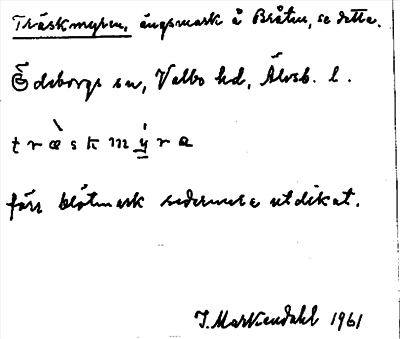 Träskmyren, ängsmark å Bråten, se detta.
Ödeborgs sn, Valbo hd, Älvsb. l.
træ̀skmýra
förr blötmark sedermera utdikat.
J. Markendahl 1961